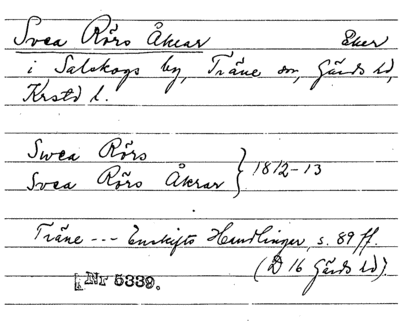 Svea Rörs Åkrar Eker
i Salskogs by, Träne sn, Gärds hd,
Krstd l.
Swea Rörs
Svea Rörs Åkrar } 1812-13
Träne --- Enskifts Handlingar, s. 89 ff.
(D 16 Gärds hd).
Nr 5339.